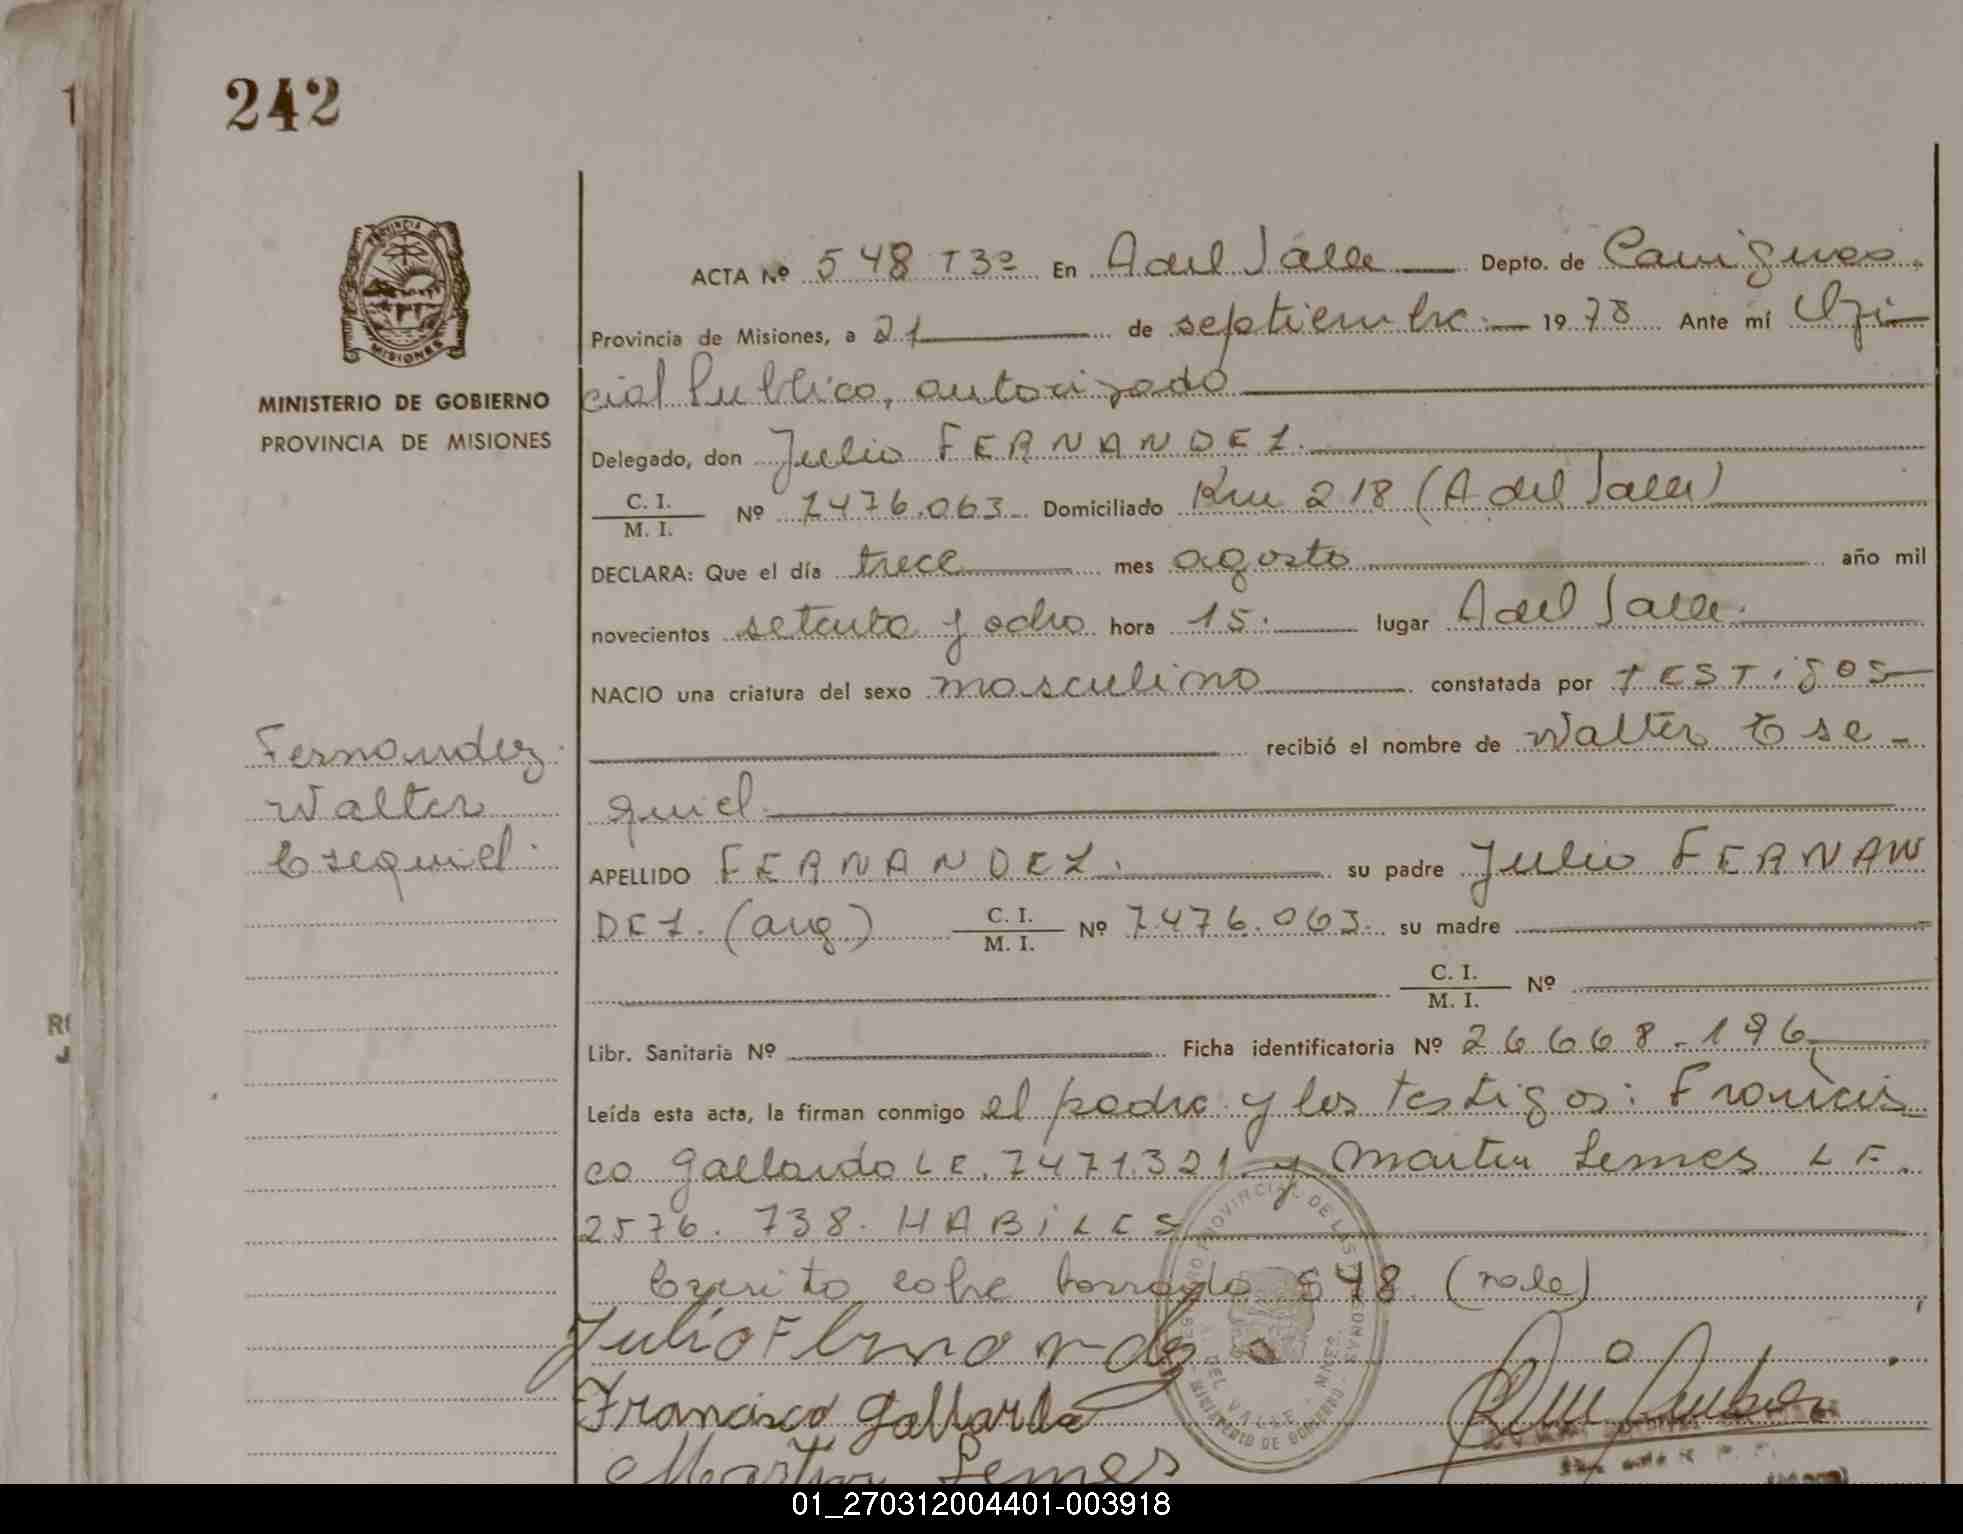 242
PROVINCIA DE
MISIONES
MINISTERIO DE GOBIERNO
PROVINCIA DE MISIONES
ACTA Nº 548 T3º En A del Valle Depto. de Cainguas.
Provincia de Misiones, a 21 de septiembre 1978 Ante mí Ofi-
cial Publico, autorizado
Delegado, don Julio FERNANDEZ.
C. I.
M. I. Nº 7476.063 Domiciliado Km 218 (A del Valle)
DECLARA: Que el día trece mes agosto año mil
novecientos setenta y ocho hora 15. lugar A del Valle.
NACIO una criatura del sexo masculino constatada por TESTigos
recibió el nombre de Walter Ese-
quiel
Fernandez
Walter
Esequiel
APELLIDO FERNANDEZ. su padre Julio FERNAN
DEZ. (arg) C. I.
M. I. Nº 7.476.063. su madre
C. I.
M. I. Nº
Libr. Sanitaria Nº Ficha identificatoria Nº 26668.196
Leída esta acta, la firman conmigo el padre y los testigos: Francis
co Gallardo LE. 7471.321 y Martin Lemes LE.
2576.738. HABiLES
Escrito sobre borrado 548 (vale)
Julio Fernandez
Francisco Gallardo
Martin Lemes
REGISTRO PROVINCIAL DE LAS PERSONAS
DEL VALLE - MNES.
MINISTERIO DE GOBIERNO
01_270312004401-003918